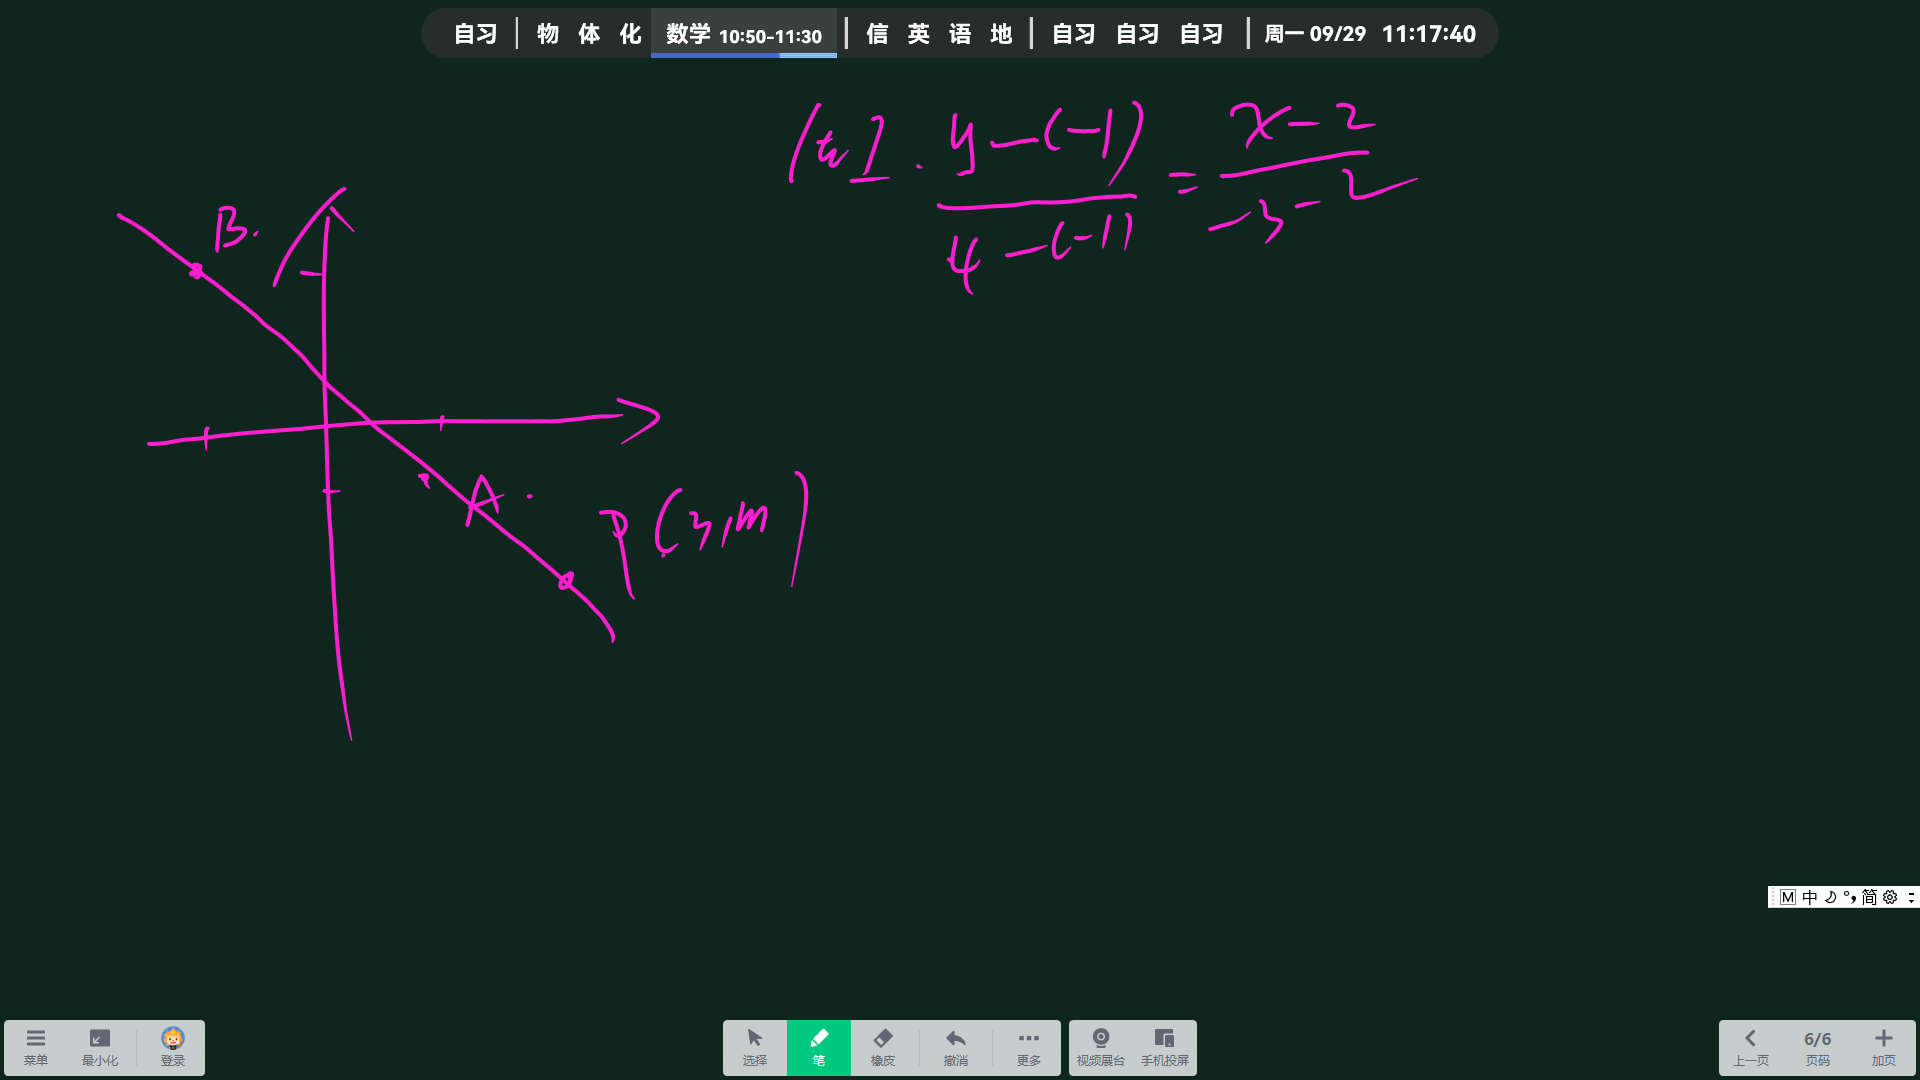 自习 物 体 化 数学 10:50-11:30 信 英 语 地 自习 自习 自习 周一 09/29 11:17:40
y-(-1) / 4-(-1) = x-2 / -3-2
B.
A.
P(3,m)
M 中 简
菜单 最小化 登录 选择 笔 橡皮 撤消 更多 视频展台 手机投屏 上一页 6/6 页码 加页